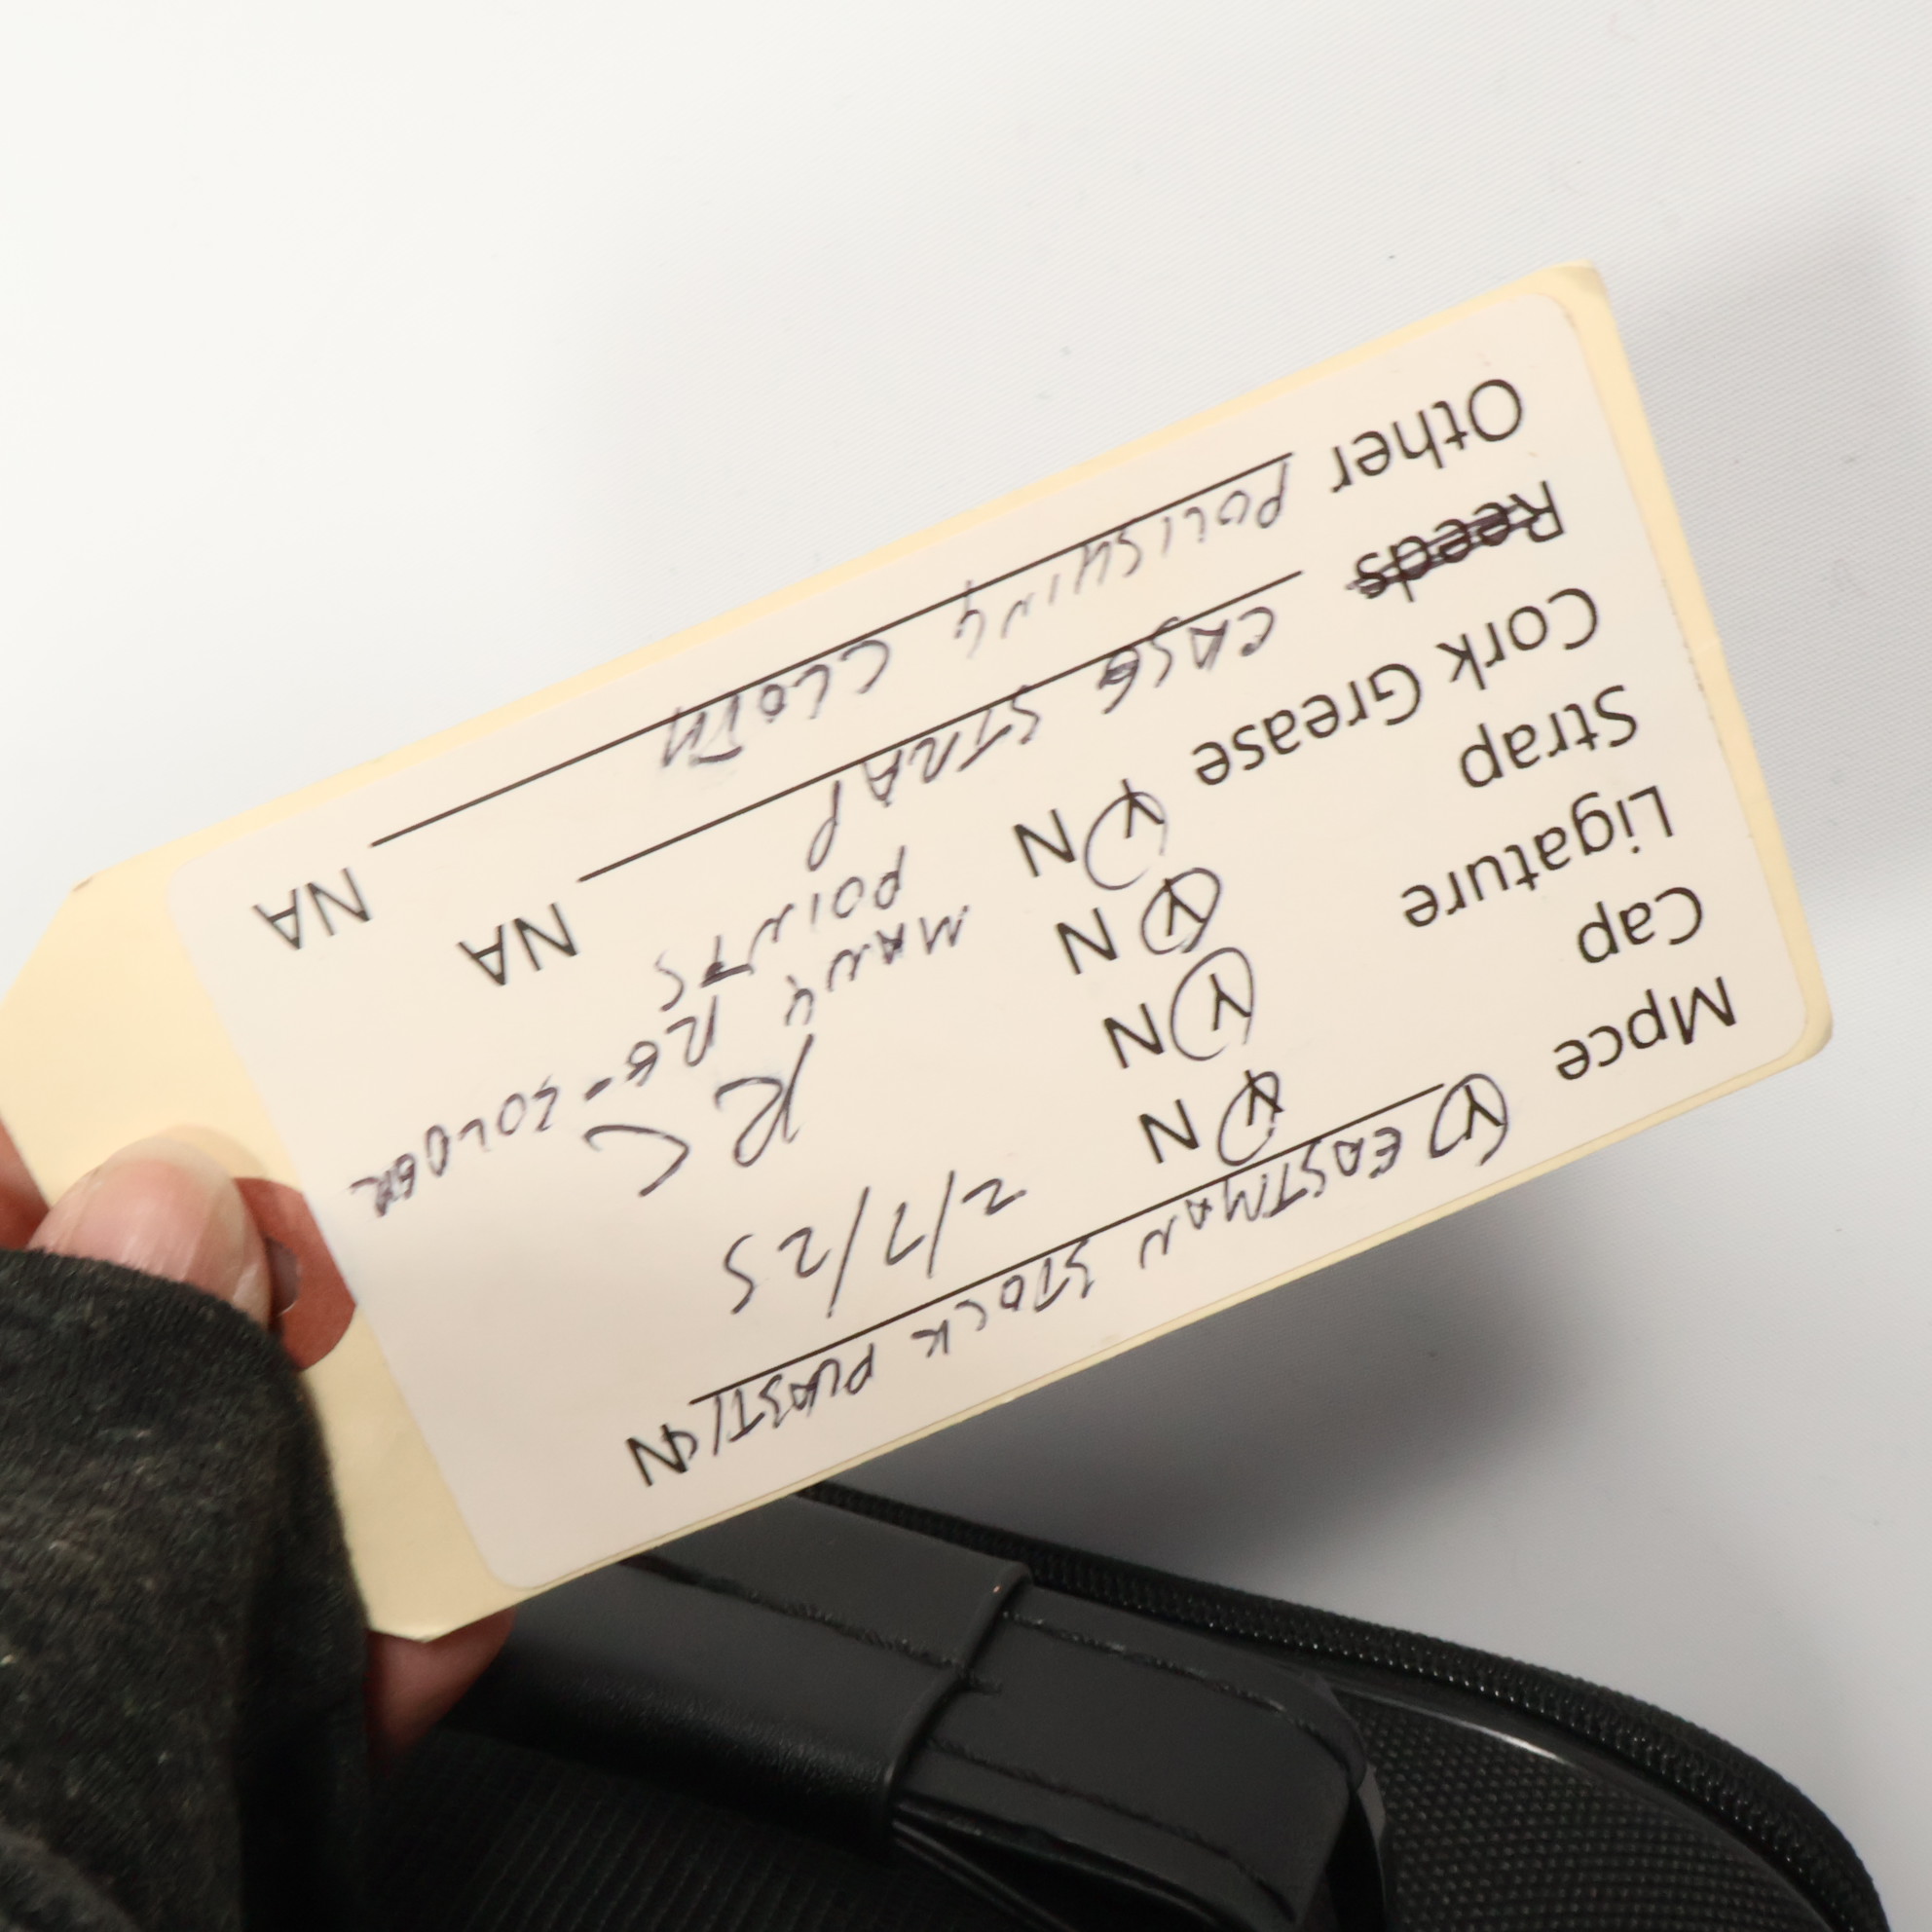 Mpce Y EASTMAN STOCK PLASTIC N
Cap Y N
Ligature Y N 2/7/25
Strap Y N RC
Cork Grease Y N MANY RE-SOLDER
POINTS
Reeds CASE STRAP NA
Other POLISHING CLOTH NA